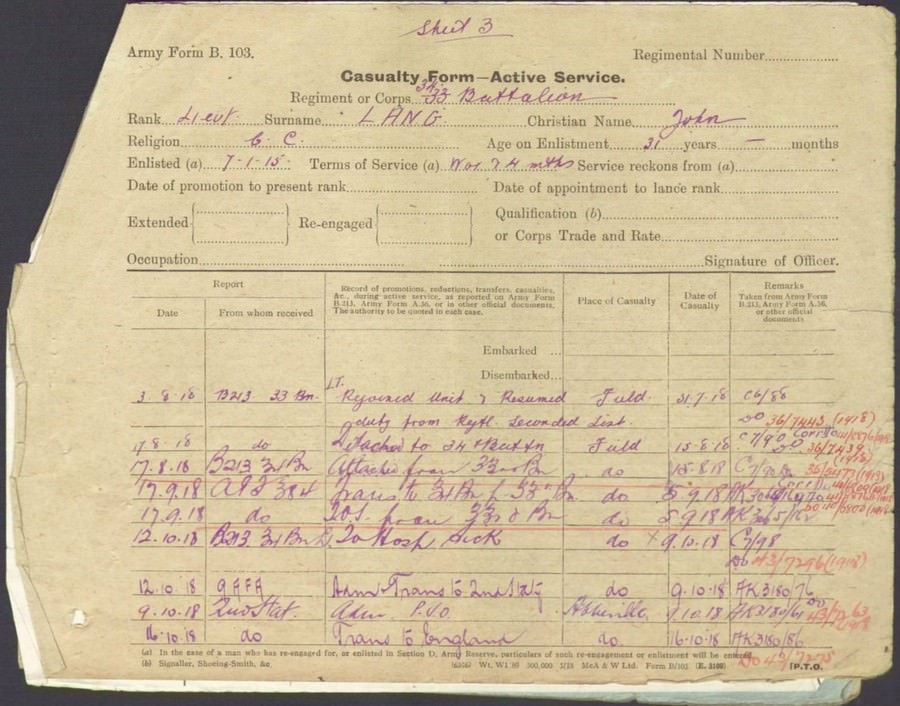 Sheet 3
Army Form B. 103. Regimental Number
Casualty Form—Active Service.
Regiment or Corps 34 33 Battalion
Rank Lieut Surname LANG Christian Name John
Religion C. C. Age on Enlistment 31 years — months
Enlisted (a) 7-1-15 Terms of Service (a) War & 4 mths Service reckons from (a)
Date of promotion to present rank Date of appointment to lance rank
Extended Re-engaged Qualification (b)
or Corps Trade and Rate
Occupation Signature of Officer.
Report
Date
From whom received
Record of promotions, reductions, transfers, casualties, &c., during active service, as reported on Army Form B.213, Army Form A.36, or in other official documents. The authority to be quoted in each case.
Place of Casualty
Date of Casualty
Remarks
Taken from Army Form B.213, Army Form A.36, or other official documents
Embarked ...
Disembarked...
3-8-18 B213 33 Bn. Lt. Rejoined Unit & Resumed Field 31-7-18 C6/88
duty from Regtl. Seconded List. DO 36/7443 (1918)
17-8-18 do Detached to 34th Battn Field 15-8-18 C7/90 DO 36/7439 (1918)
17.8.18 B213 34 Bn Attached from 33rd Bn do 15-8-18
17.9.18 Trans to 34 Bn f 33rd Bn. do 5.9.18
17.9.18 do T.O.S. from 33rd Bn do 5.9.18 AK
12.10.18 B213 34 Bn To Hosp Sick do 9.10.18 C7/98
DO 43/7296 (1918)
12.10.18 9 AFA Adm & Trans to 2nd Staty do 9.10.18 AK3180/76
9.10.18 2nd Stat. Adm P.U.O. Abbeville 9.10.18 AK3180/61 DO
16.10.18 do Trans to England do 16.10.18 AK3180/86
DO 43/7275
(a) In the case of a man who has re-engaged for, or enlisted in Section D, Army Reserve, particulars of such re-engagement or enlistment will be entered.
(b) Signaller, Shoeing-Smith, &c. Wt. W1 300,000 5/18 McA & W Ltd. Form B/103 (E. 3109) [P.T.O.